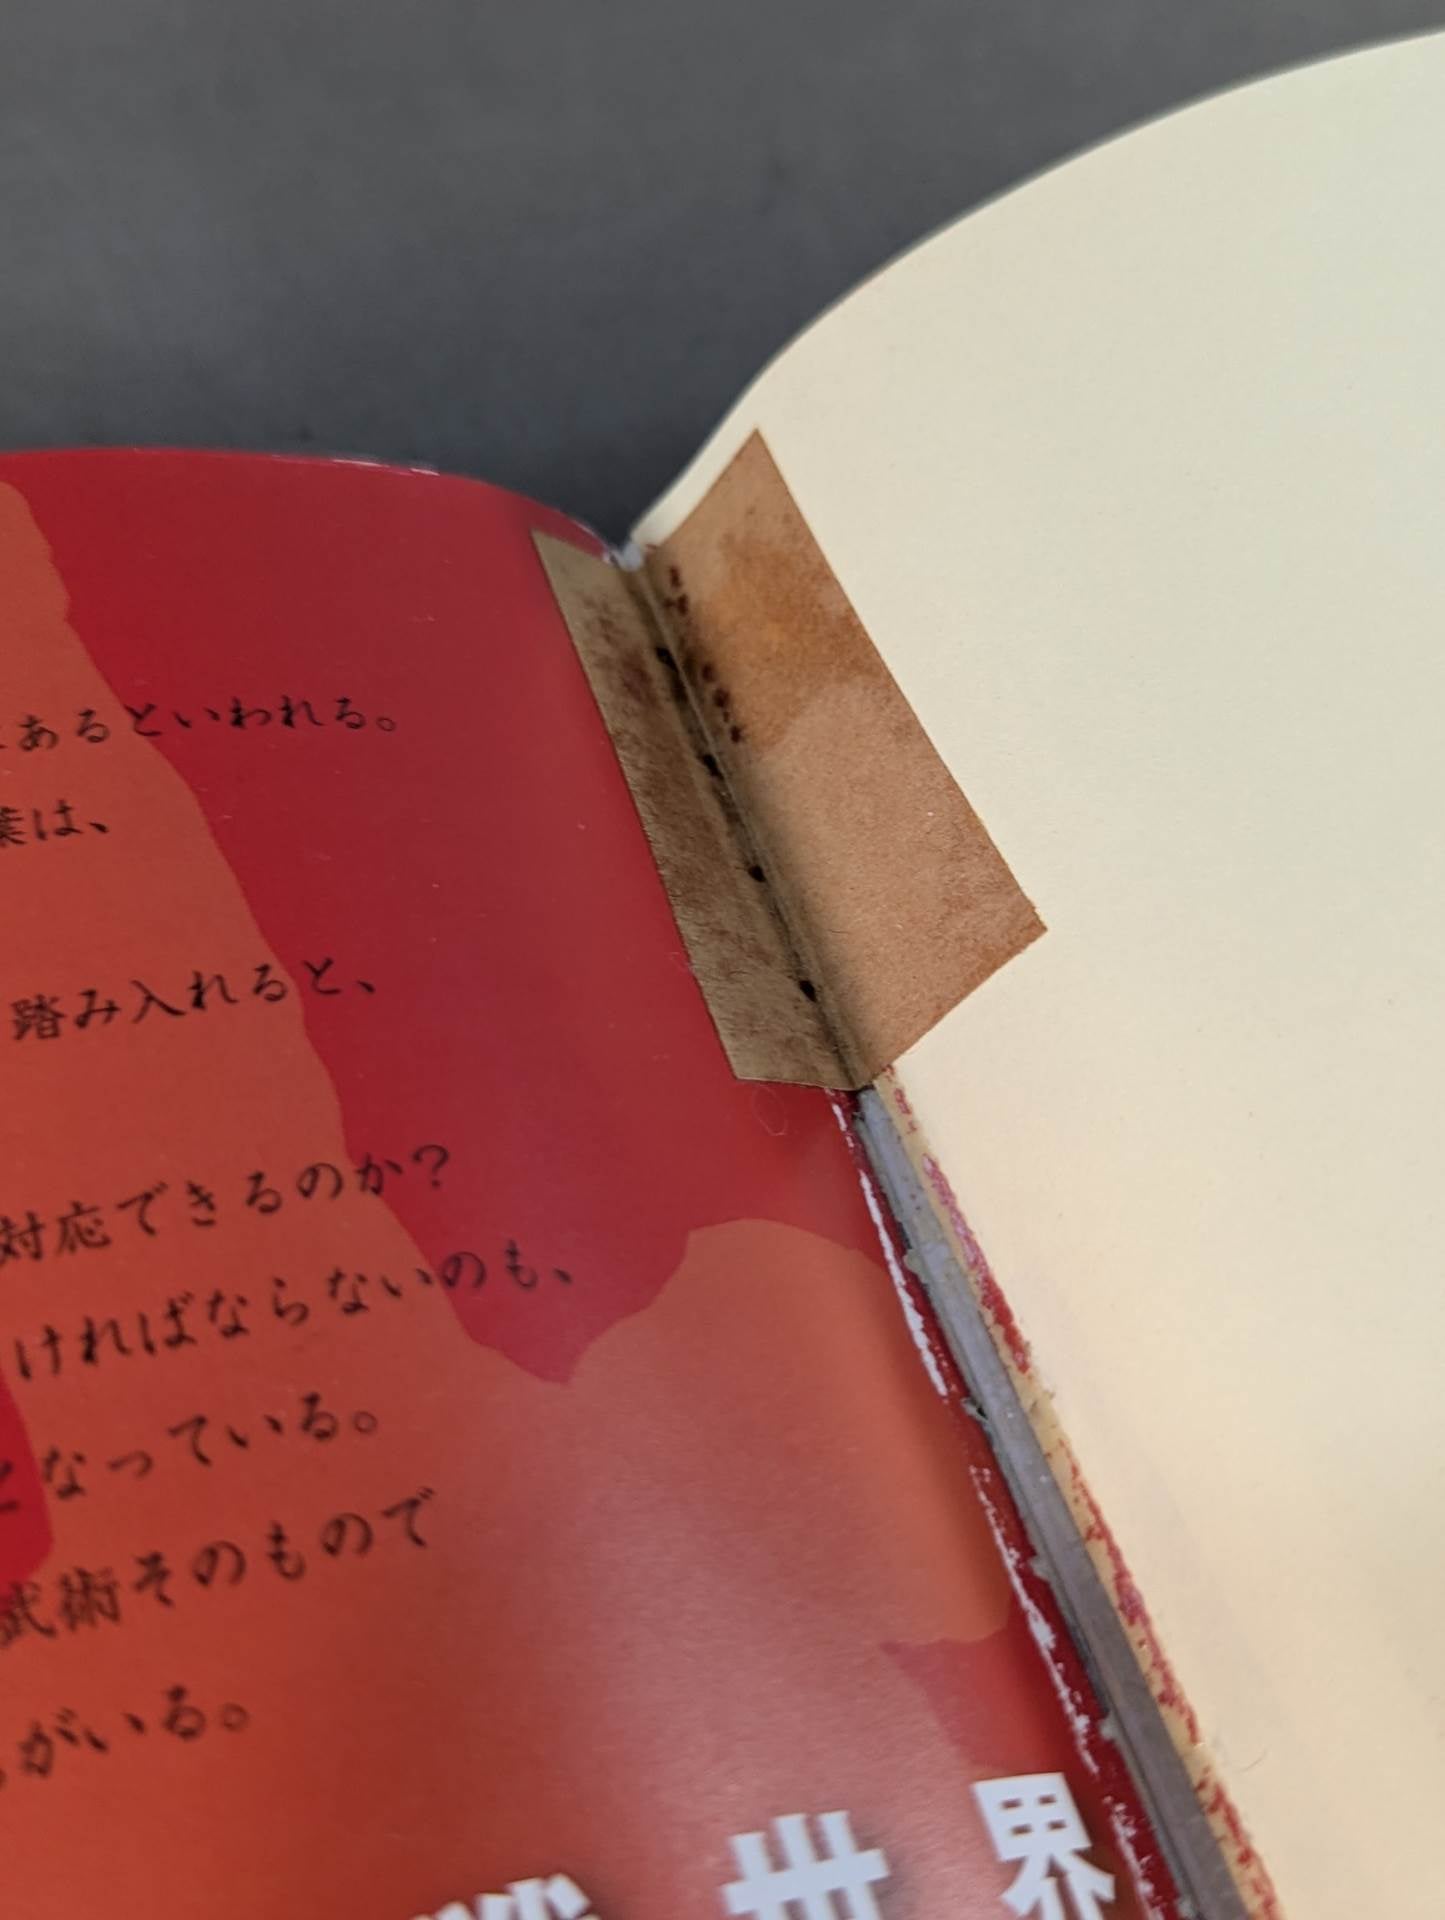 あるといわれる。
業は、
踏み入れると、
対応できるのか?
ければならないのも、
となっている。
武術そのもので
がいる。
世界